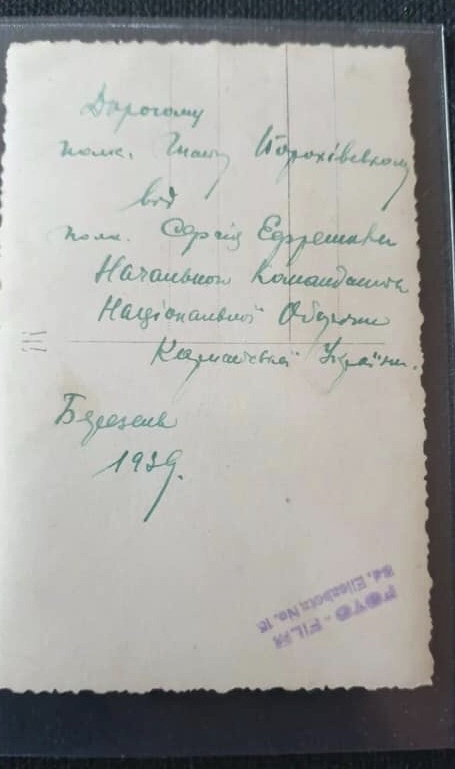 Дорогому
полк. Гнату Порохівському
від
полк. Сергія Єфремова
Начального Команданта
Національної Оборони
Карпатської України.
Березень
1939.
FOTO-FILM
Bd. Elisabeta No. 15